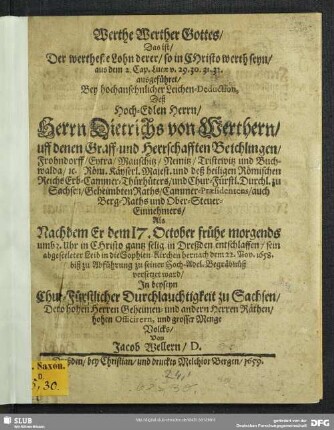 Werthe Werther Gottes/
Das ist/
Der wertheste Lohn derer/ so in CHristo werth seyn/
aus dem 2. Cap. Lucæ v. 29. 30. 31. 32.
ausgeführet/
Bey hochansehnlicher Leichen-Deduction,
Deß
Hoch-Edlen Herrn/
Herrn Dietrichs von Werthern/
uff denen Graff- und Herrschafften Beichlingen/
Frohndorff/ Eytra/ Mauschitz/ Nemitz/ Tristewitz und Buch-
walda/ ec. Röm. Käyserl. Majest. und deß heiligen Römischen
Reichs Erb-Cammer-Thürhüters/ und Chur-Fürstl. Durchl. zu
Sachsen/ Geheimbten Raths/ Cammer-Præsidentens/ auch
Berg-Raths und Ober-Steuer-
Einnehmers/
Als
Nachdem Er dem 17. October frühe morgends
umb 7. Uhr in Christo gantz selig in Dreßden entschlaffen/ sein
abgeseelter Leib in die Sophien-Kirchen hernach dem 22. Nov. 1658.
biß zu Abführung zu seiner Hoch-Adel. Begräbnüß
versetzet ward/
In beyseyn
Chur-Fürstlicher Durchlauchtigkeit zu Sachsen/
Dero hohen Herren Geheimen- und andern Herren Räthen/
hohen Officirern, und grosser Menge
Volcks/
Von
Jacob Wellern/ D.
Dreßden/ bey Christian/ und druckts Melchior Bergen/ 1659.
. Saxon.
30.
SLUB
Wir führen Wissen.
gefördert von der
DFG
Deutschen Forschungsgemeinschaft